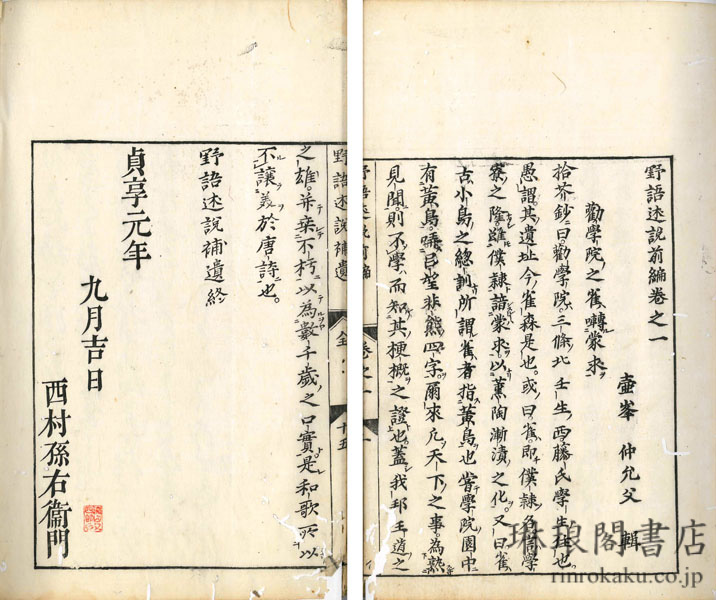 野語述説前編卷之一
壺峯 仲允父 輯
勸學院之雀囀蒙求
拾芥鈔曰勸學院三條北壬生西勝氏學生住也
愚謂其遺址今雀森是也或曰雀即僕隷名侑學
寮之隆雖僕隷諳蒙求以薫陶漸漬之化又曰雀
古小鳥之総訓所謂雀者指黄鳥也甞學院園中
有黄鳥囀呂望非熊四字爾來凢天下之事為熟
見聞則不學而知其梗概之證也蓋我邦王道之
野語述説前編
卷之一
一
野語述説補遺
十五
之雄并棄不朽以為數千歳之口實是和歌所以
不讓美於唐詩也
野語述説補遺終
貞享元年
九月吉日
西村孫右衞門
琳琅閣書店
rinrokaku.co.jp